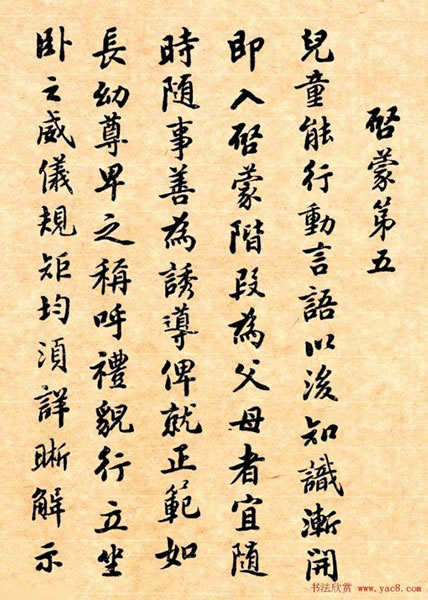 啓蒙第五
兒童能行動言語以後知識漸開
即入啓蒙階段為父母者宜隨
時随事善為誘導俾就正範如
長幼尊卑之稱呼禮貌行立坐
卧之威儀規矩均須詳晰解示
书法欣赏 www.yac8.com